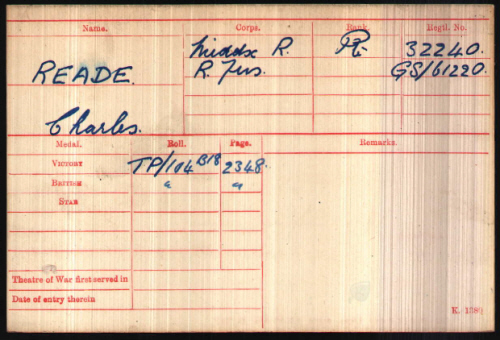 Name. Corps. Rank. Regtl. No.
Middx R. Pte 32240.
READE. R. Fus. GS/61220.
Charles.
Medal. Roll. Page. Remarks.
Victory TP/104 B18 2348.
British " "
Star
Theatre of War first served in
Date of entry therein
K. 1380